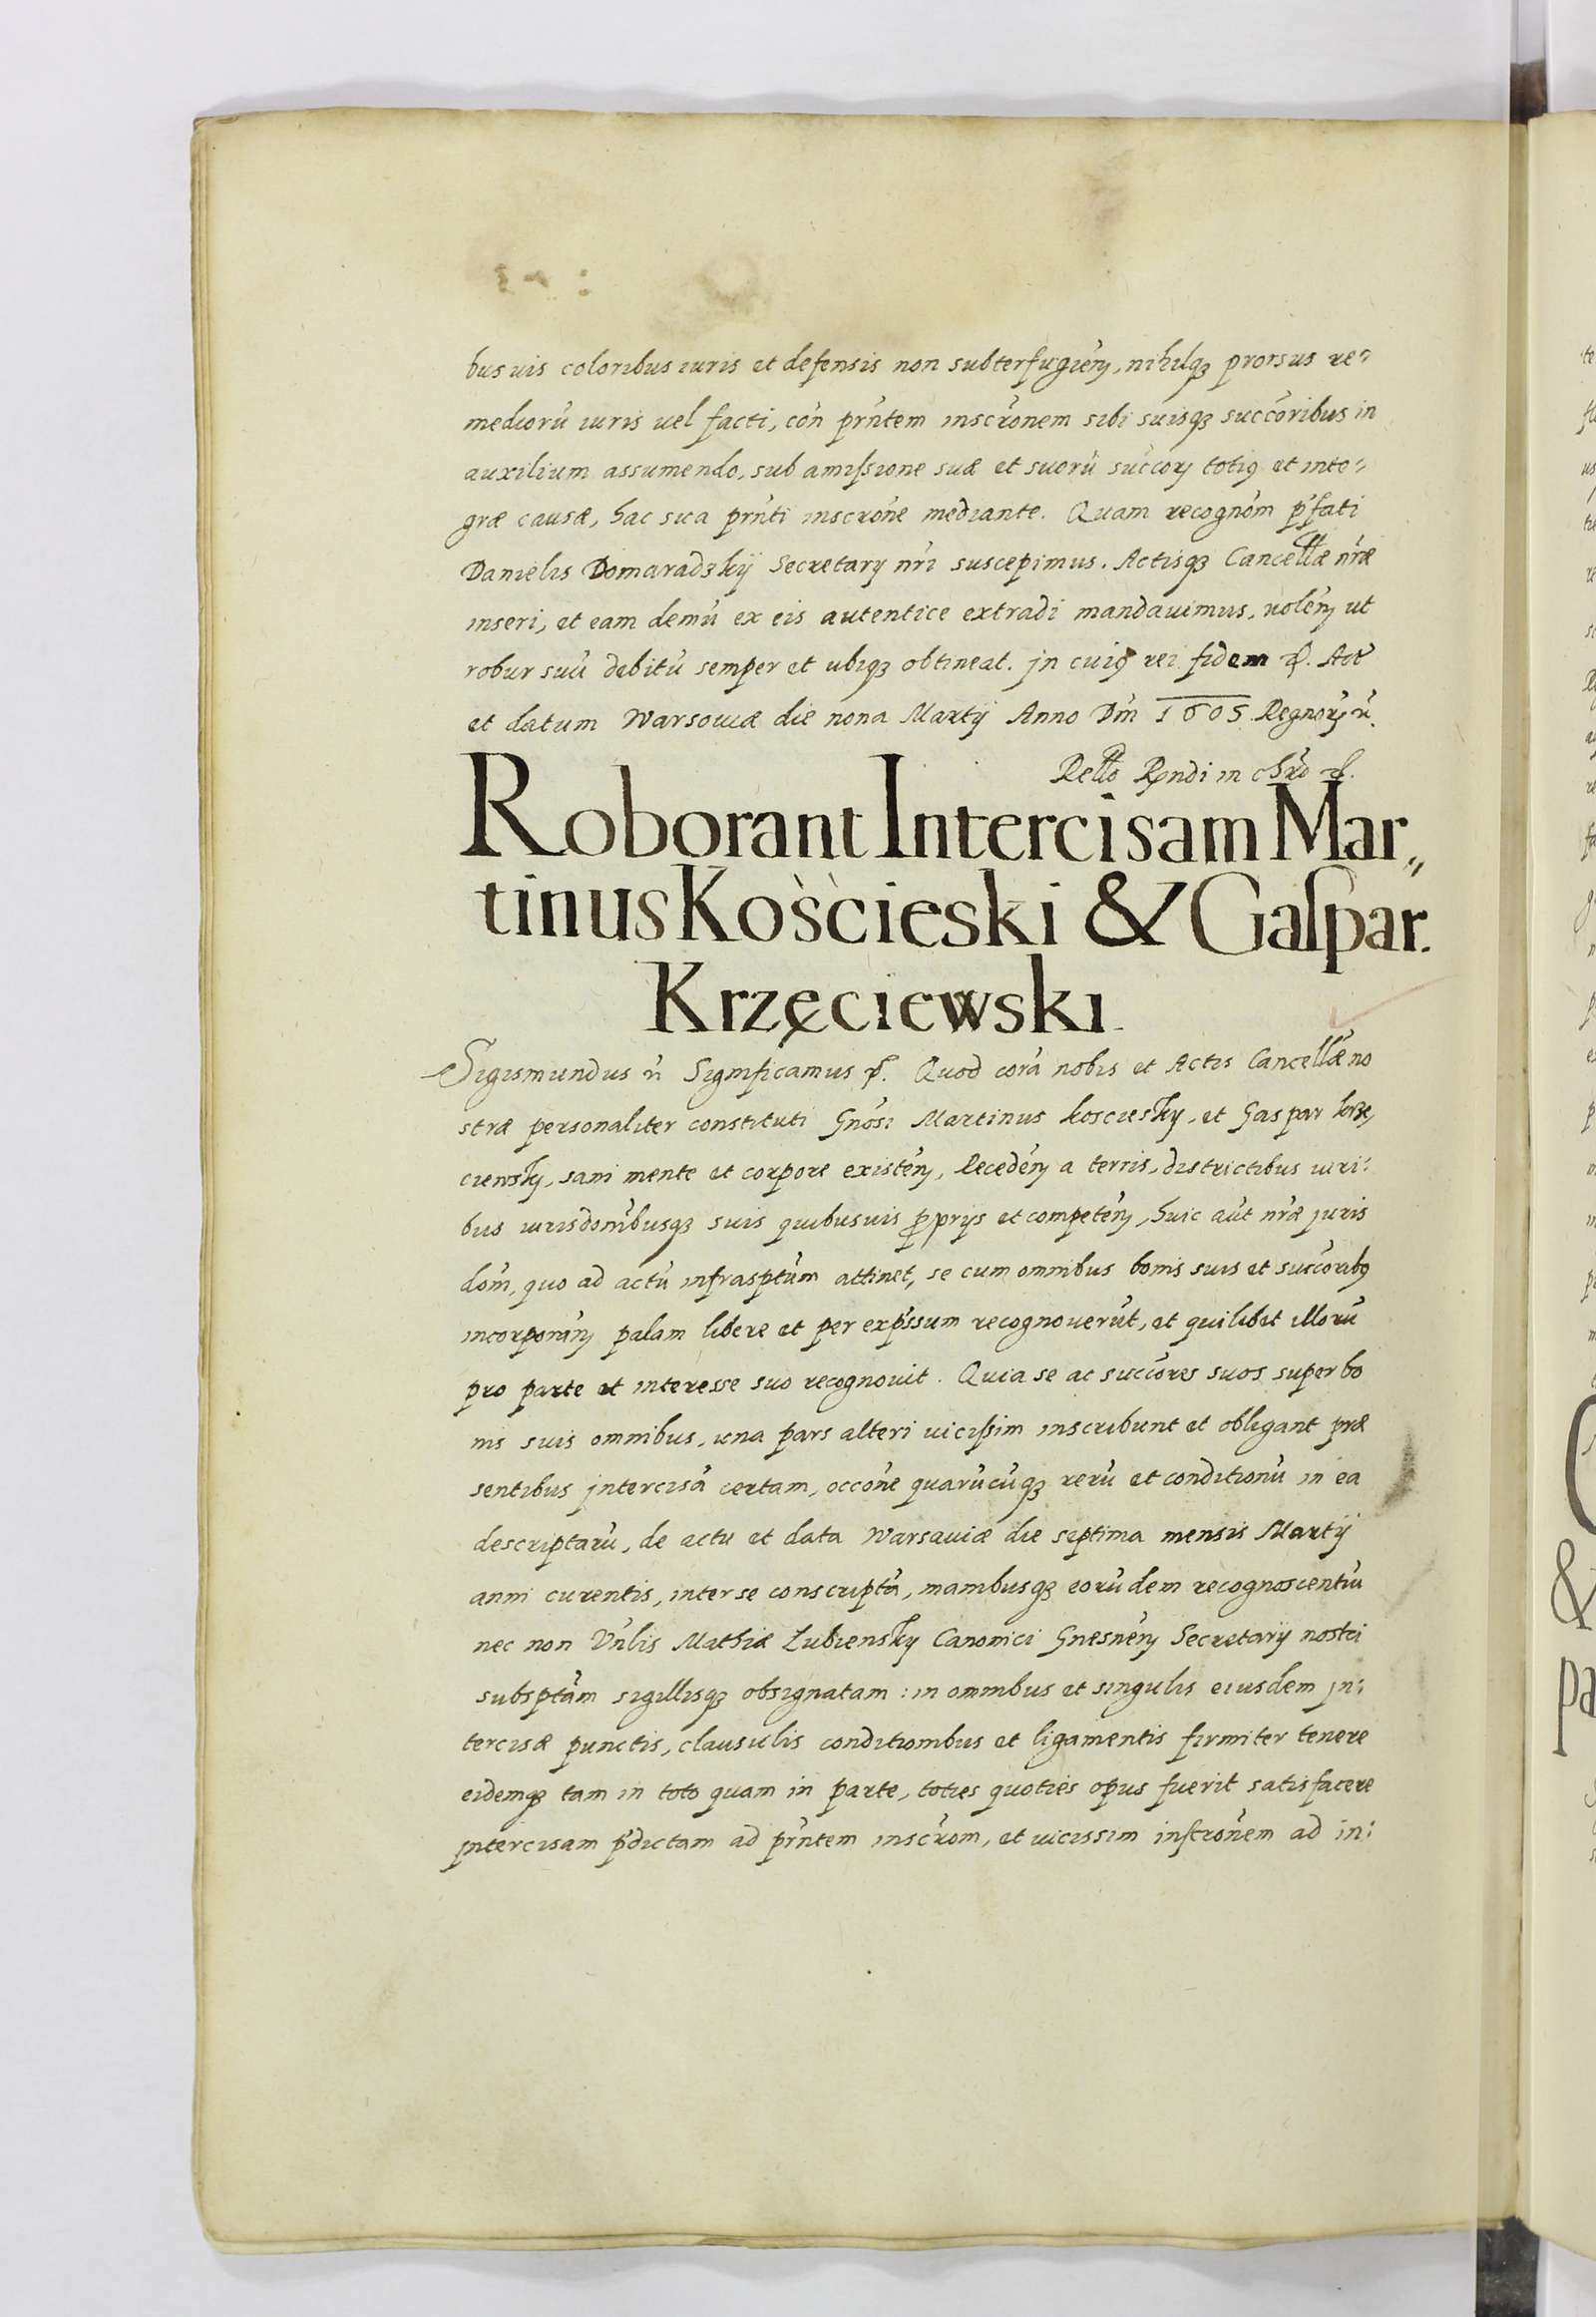 bus uis coloribus iuris et defensis non subterfugień, nihilqȝ prorsus re-
mediorū iuris uel facti, cōn prńtem inscrōnem sibi suisqȝ succōribus in
auxilium assumendo, sub amissione suæ et suorū succorȝ totiꝰ et inte-
græ causæ, hac sua prńti inscrōne mediante. Quam recognōm p̄fati
Danielis Domaradzkij Secretarij nr̄i suscepimus. Actisqȝ Cancellæ nr̄æ
inseri, et eam demū ex eis autentice extradi mandauimus, uolēn ut
robur suū debitū semper et ubiqȝ obtineat. jn cuiꝰ rei fidem etc. Act
et datum Warsouiæ die nona Martij Anno Dm̄ 1605. Regnorȝ n̄.
Rel̄lo Rn̄di in chr̄o etc.
Roborant Intercisam Mar„
tinus Kościeski & Gaſpar.
Krzęciewski.
Sigismundus n̄ Significamus etc. Quod corā nobis et Actis Cancellæ no
stræ personaliter constituti Gnōsi Martinus Kosciesky, et Gaspar Krzę
ciewsky, sani mente et corpore existēn, Recedēn a terris, districtibus iuri-
bus iurisdonībusqȝ suis quibusuis ꝓprijs et competēn, huic aūt nr̄æ juris
dom̄, quo ad actū infrasptūm attinet, se cum omnibus bonis suis et succōribꝰ
incorporāń palam libere et per exp̄ssum recognouerūt, et quilibet illorū
pro parte et interesse suo recognouit. Quia se ac succōres suos super bo
nis suis omnibus, una pars alteri uicissim inscribunt et obligant præ
sentibus jntercisā certam, occōne quarūcūqȝ rerū et conditionū in ea
descriptarū, de actu et data Warsauiæ die septima mensis Martij
anni curentis, inter se conscriptā, manibusqȝ eorūdem recognoscentiū
nec non Vn̄lis Mathiæ Łubiensky Canonici Gnesnēn Secretarij nostri
subsptām sigillisqȝ obsignatam: in omnibus et singulis eiusdem jn-
tercisæ punctis, clausulis conditionibus et ligamentis firmiter tenere
eidemqȝ tam in toto quam in parte, toties quoties opus fuerit satisfacere
jntercisam p̄dictam ad pr̄ntem inscr̄om, et uicissim inſcrōnem ad in-